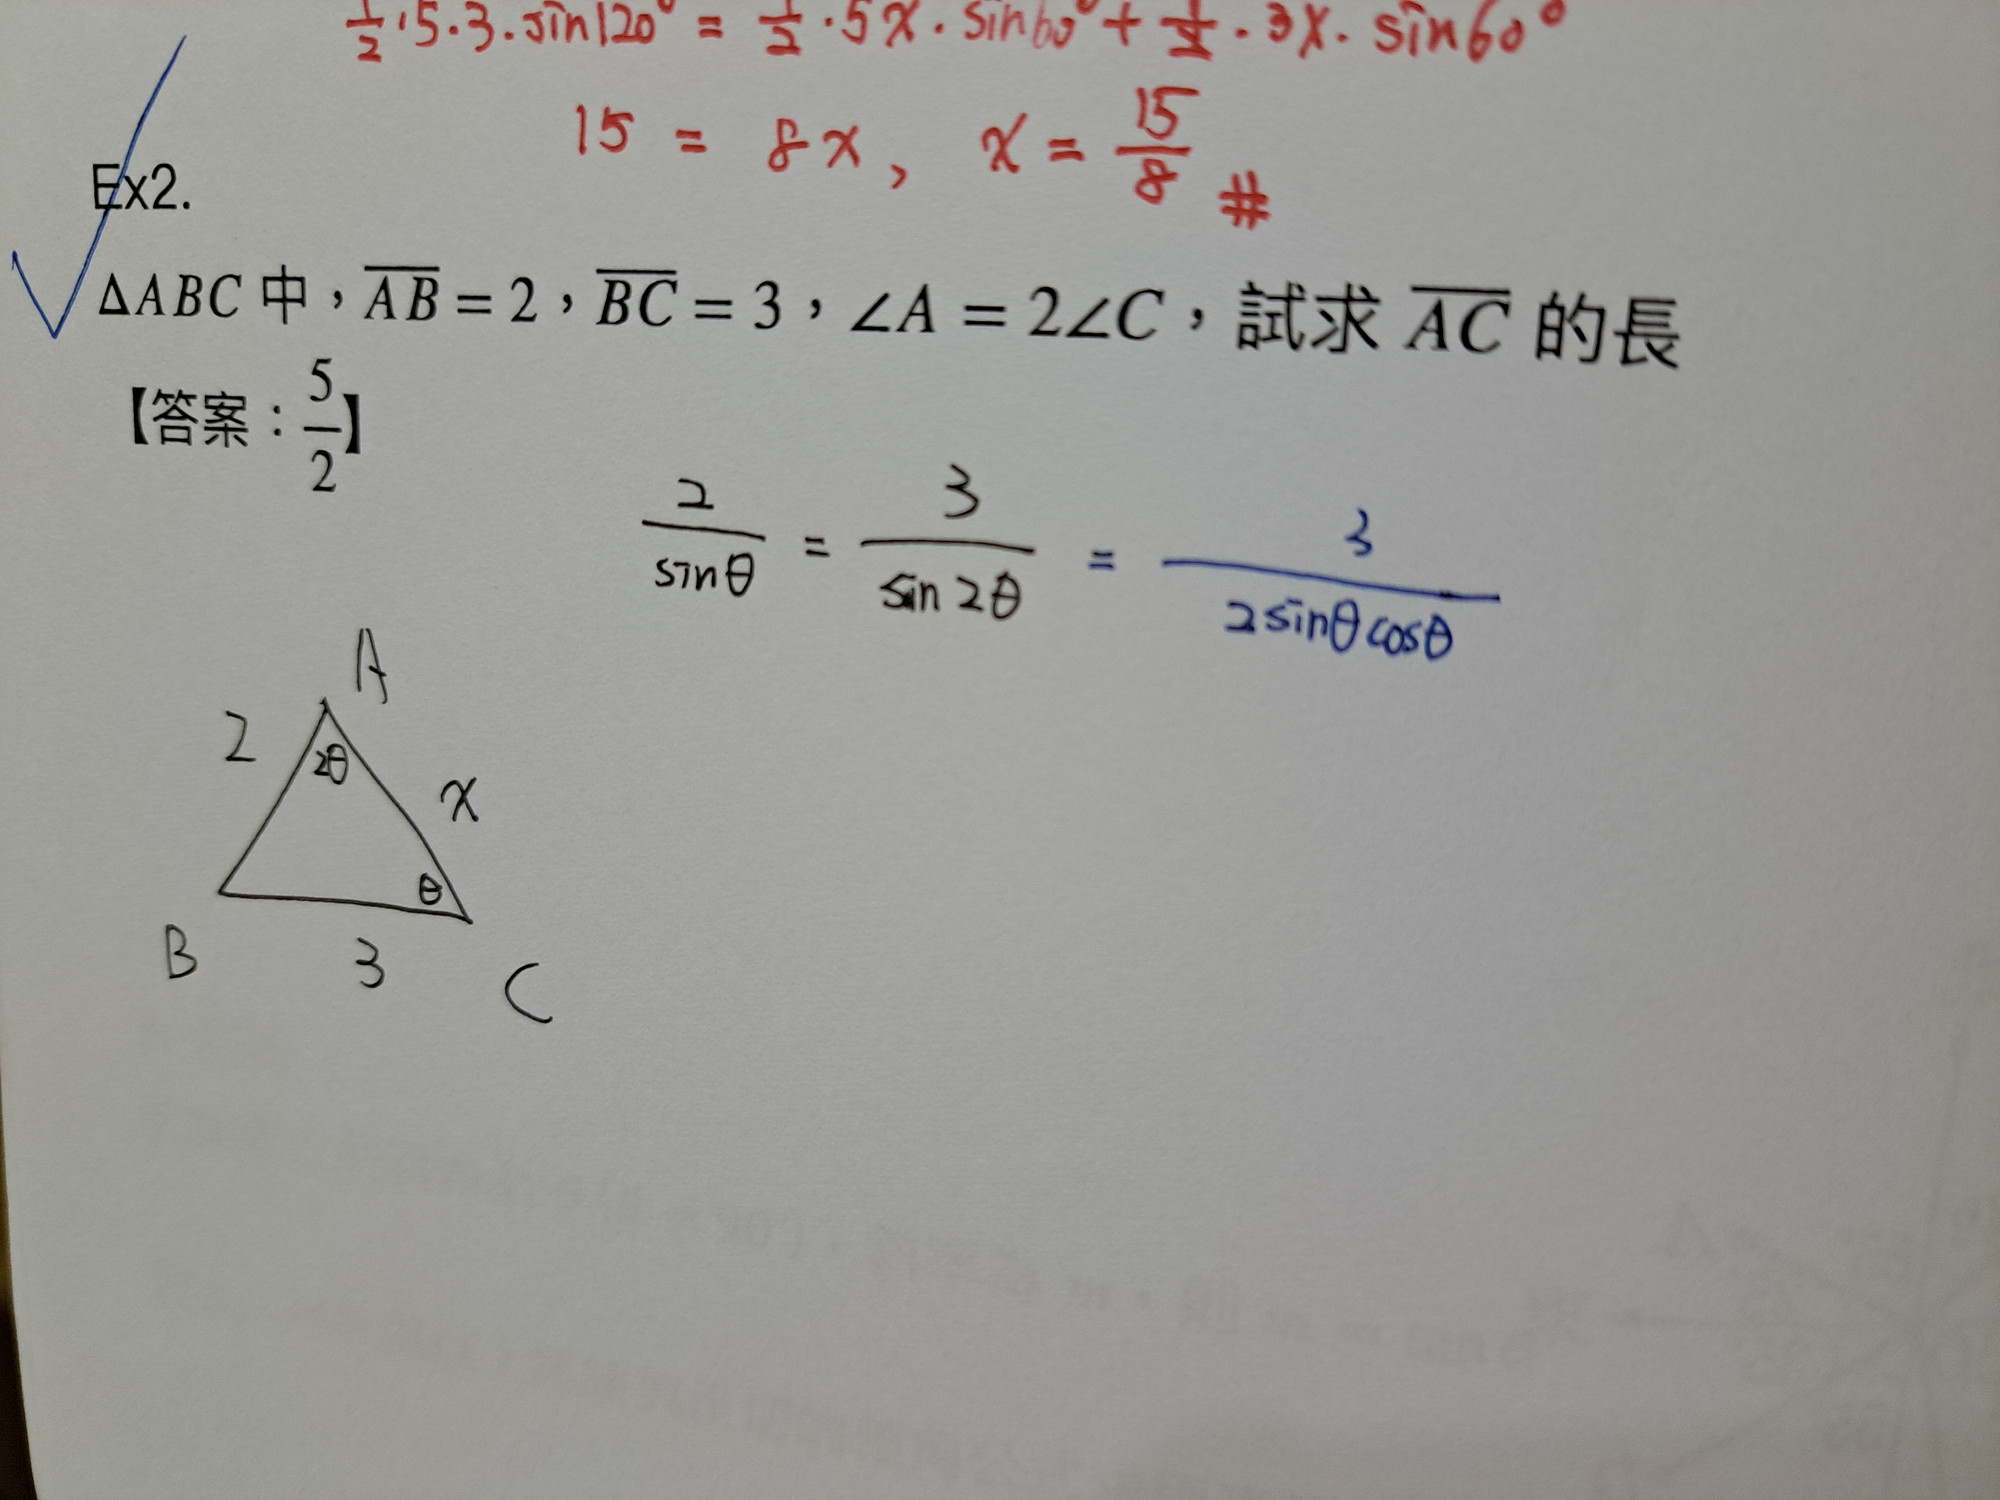 1/2 · 5 · 3 · sin120° = 1/2 · 5x · sin60° + 1/2 · 3x · sin60°
15 = 8x , x = 15/8 #
Ex2.
ΔABC 中，AB = 2，BC = 3，∠A = 2∠C，試求 AC 的長
【答案：5/2】
2/sinθ = 3/sin2θ = 3/2sinθcosθ
A
2 2θ x
θ
B 3 C